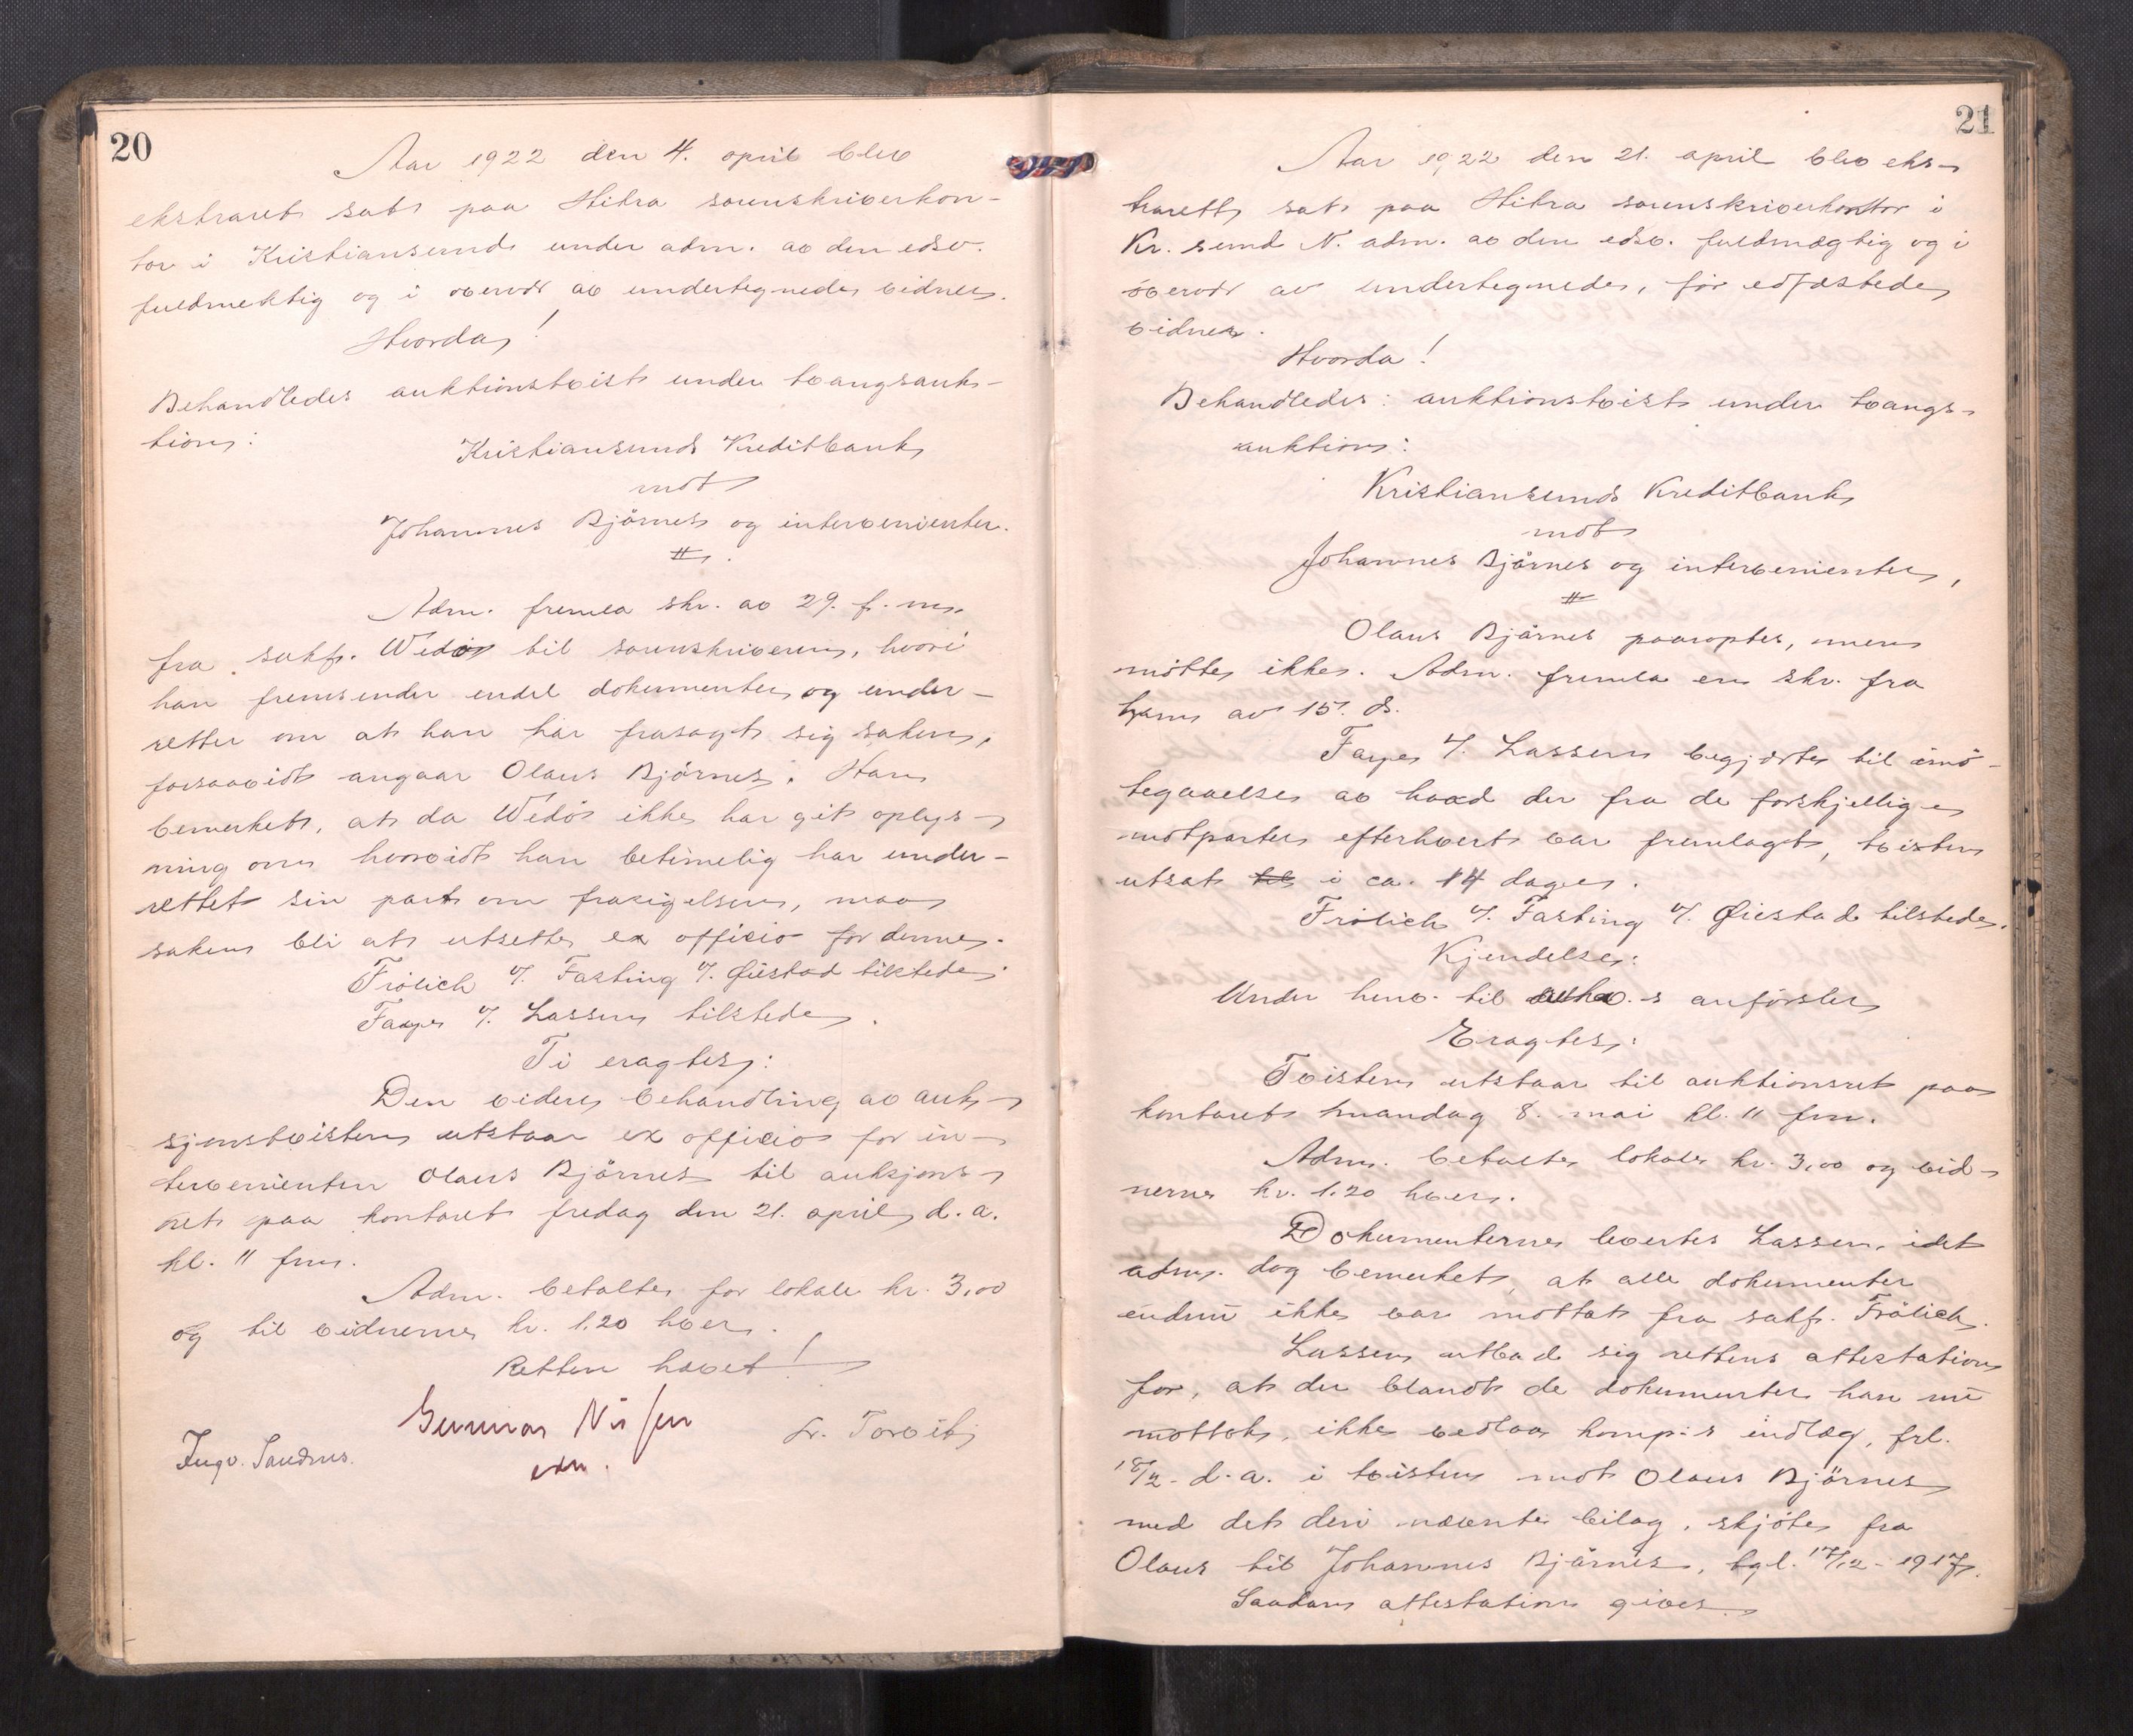 20
Aar 1922 den 4. april blev
ekstraret sat paa Hitra sorenskriverkon-
tor i Kristiansund under adm. av den edsv.
fuldmektig og i overvær av undertegnede vidner.
Hvorda!
Behandledes auktionstvist under tvangsauk-
tion:
Kristiansunds Kreditbank
mot
Johannes Bjørnes og intervenienter.
Adm. fremla skr. av 29. f. m.
fra sakf. Wedø til sorenskriveren, hvori
han fremsender endel dokumenter og under-
retter om at han har frasagt sig saken,
forsaavidt angaar Olaus Bjørnes. Han
bemerket, at da Wedø ikke har git oplys-
ning om hvorvidt han betimelig har under-
rettet sin part om frasigelsen, maa
saken bli at utsette ex officio for denne.
Frölich v/. Fasting v/. Øiestad tilstede.
Faye v/. Lassen tilstede.
Ti eragtes:
Den videre behandling av auk-
sjonstvisten utstaar ex officio for in-
tervenienten Olaus Bjørnes til auksjons-
ret paa kontoret fredag den 21. april d. a.
kl. 11 fm.
Adm. betalte for lokale kr. 3,00
og til vidnerne kr. 1.20 hver.
Retten hævet!
Gunnar Nissen
edsv.
Ingv. Sandnes.
21
Aar 1922 den 21. april blev eks-
traret sat paa Hitra sorenskriverkontor i
Kr. sund N. adm. av den edsv. fuldmægtig og i
overvær av undertegnede, før edfæstede
vidner.
Hvorda!
Behandledes: auktionstvist under tvangs-
auktion:
Kristiansunds Kreditbank
mot
Johannes Bjørnes og intervenienter,
Olaus Bjørnes paaroptes, men
møtte ikke. Adm. fremla en skr. fra
ham av 15. ds.
Faye v/. Lassen begjærte til imø-
tegaaelse av hvad der fra de forskjellige
motparter efterhvert var fremlagt, tvisten
utsat til i ca. 14 dage.
Frölich v/. Fasting v/. Øiestad tilstede.
Kjendelse:
Under henv. til -s anførsler
Eragtes:
Tvisten utstaar til auktionsret paa
kontoret mandag 8. mai kl. 11 fm.
Adm. betalte lokale kr. 3,00 og vid-
nerne kr. 1.20 hver.
Dokumenterne levertes Lassen, idet
adm. dog bemerket, at alle dokumenter
endnu ikke var mottat fra sakf. Frölich.
Lassen utbad sig rettens attestation
for, at der blandt de dokumenter han nu
mottok, ikke vedlaa komp:s indlæg, frl.
/2- d. a. i tvisten mot Olaus Bjørnes
med det deri nævnte bilag, skjøte fra
Olaus til Johannes Bjørnes, tgl. 17/12-1917.
Saadan attestation gives.